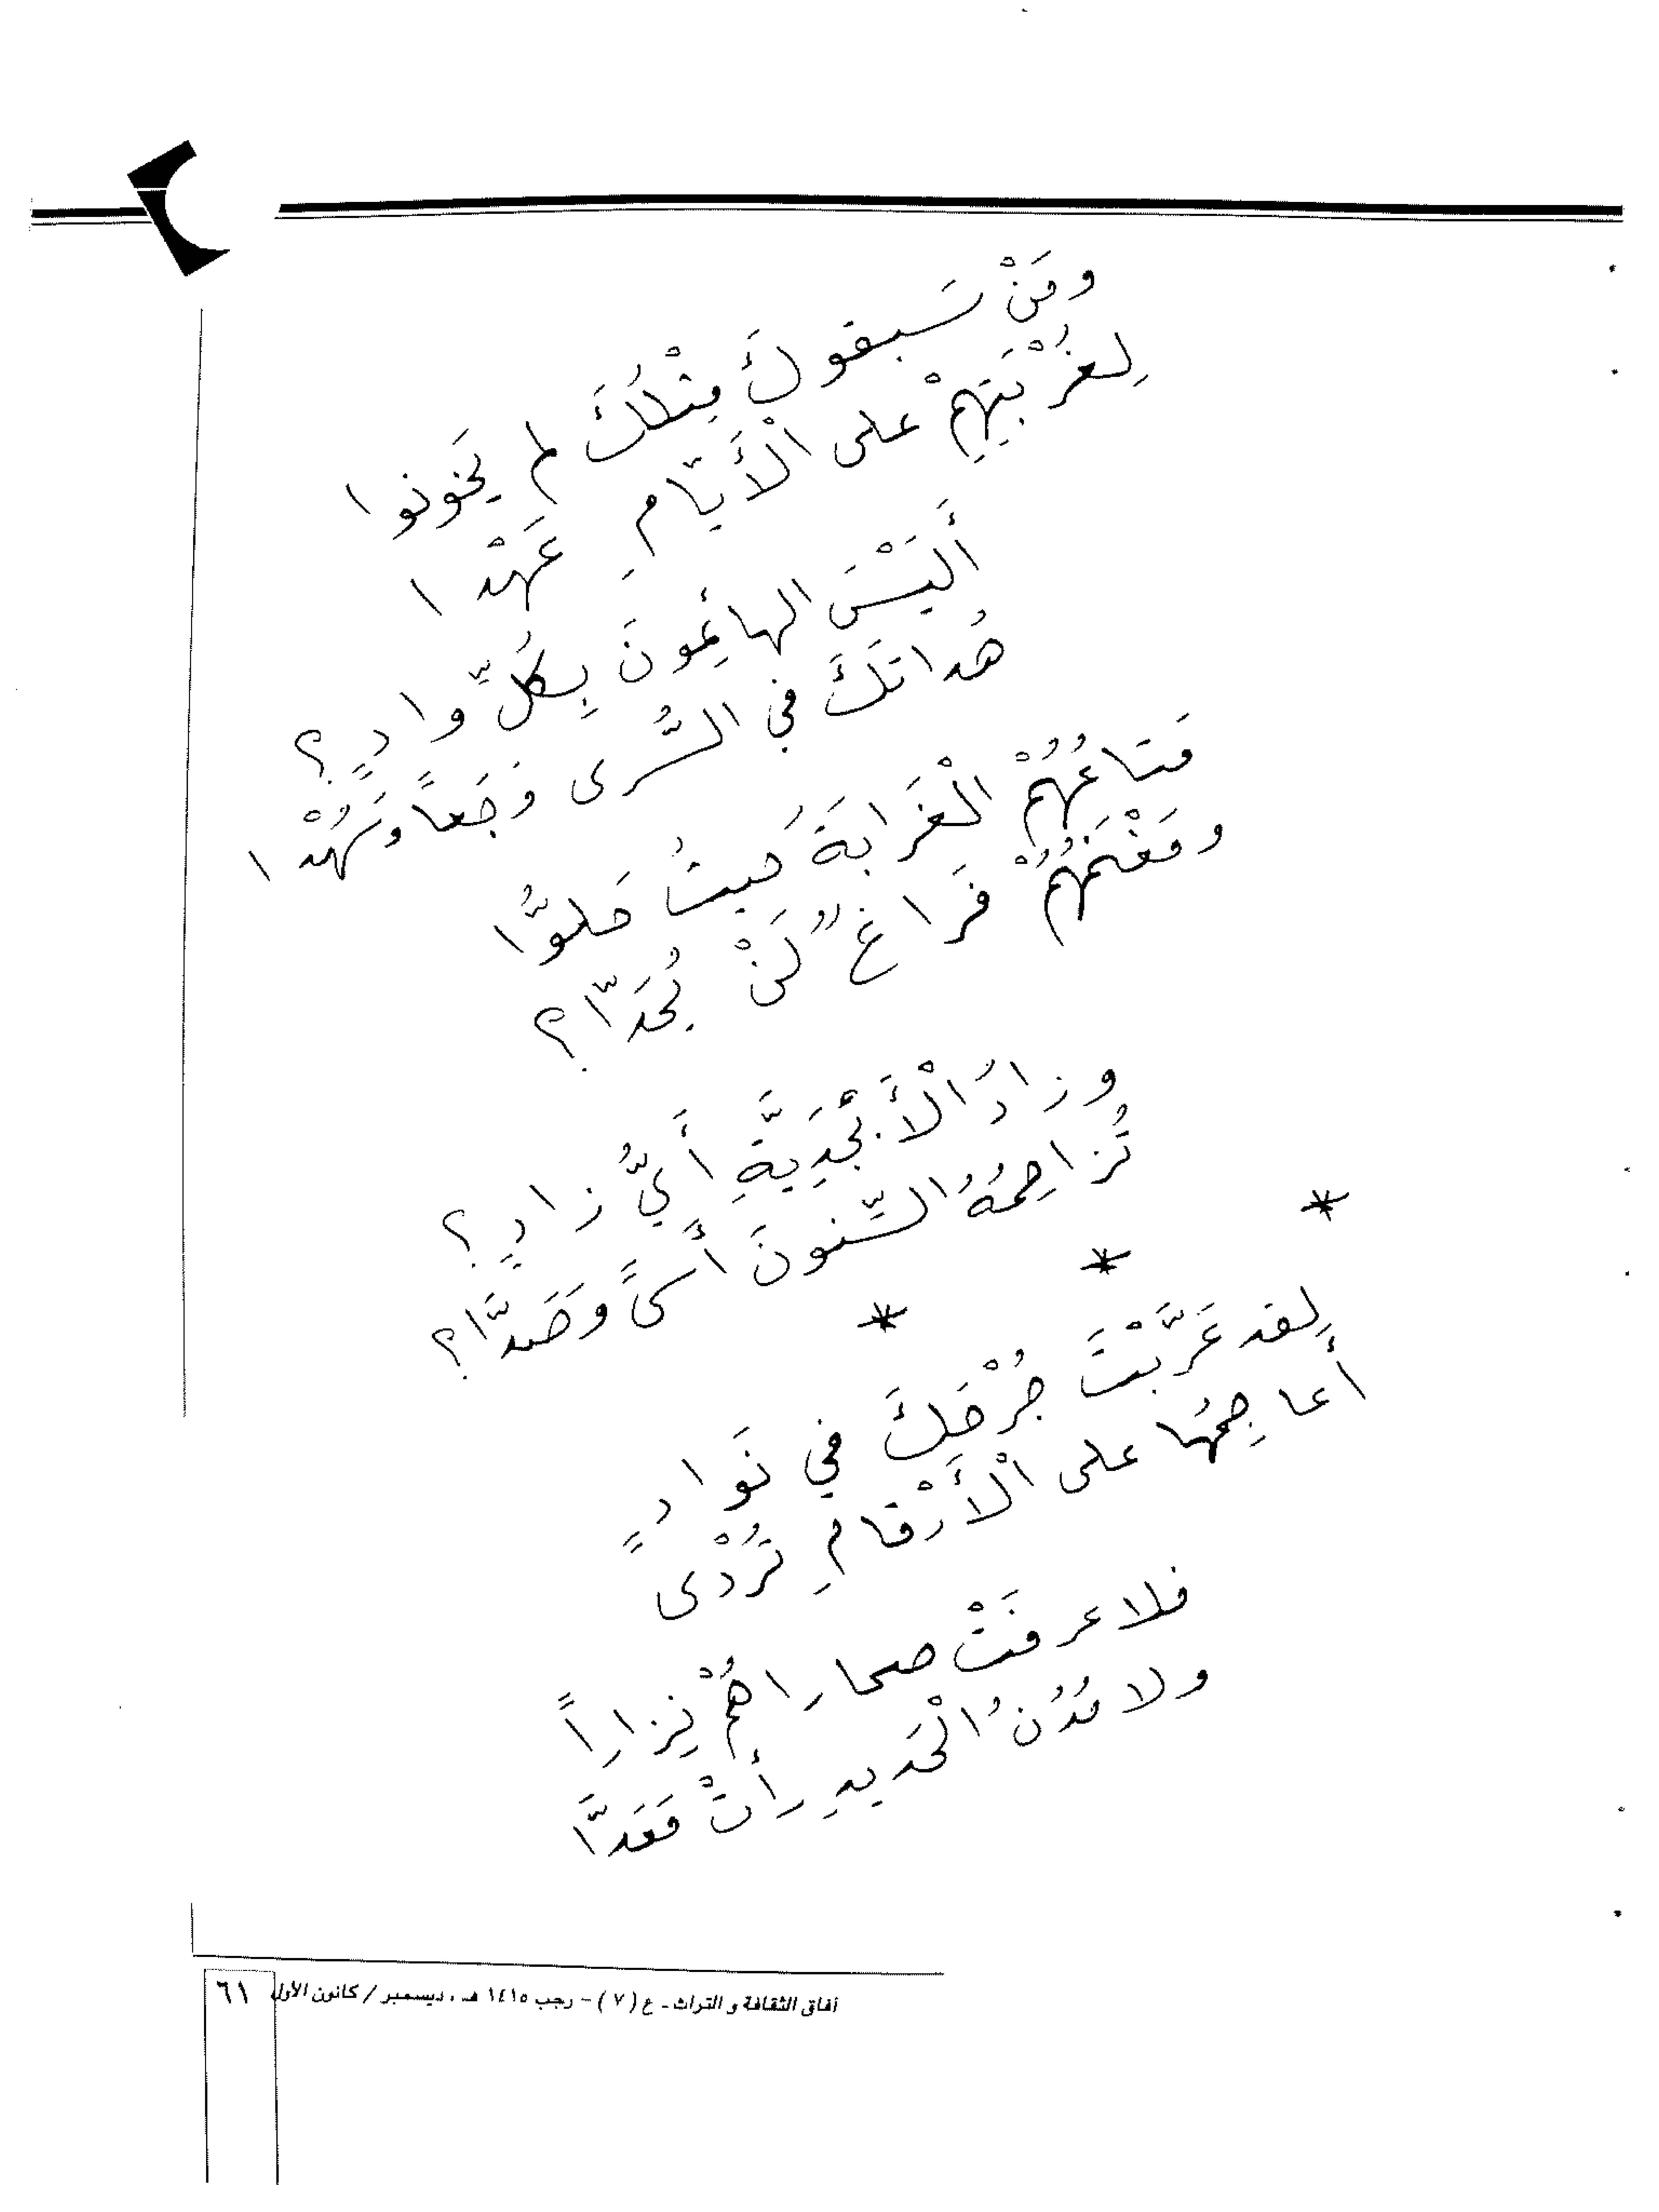 ومَنْ سَبقوكَ مِثْلُكَ لم يَخونوا
لِغُرْبَتِهِمْ على الْأَيّامِ عَهْدا
أَلَيْسَ الهائِمونَ بِكُلِّ وادٍ؟
هُداتَكَ في السُّرى وَجَعاً وسُهْدا
مَتاعُهُمُ الْغَرابَةُ حيثُ حَلوُّا
ومَغْنَمُهُمْ فَراغٌ لَنْ يُحَدّا؟
وزادُ الْأَبْجَدِيَّةِ أَيُّ زادٍ؟
تُزاحِمُهُ السِّنونَ أَسىً وَصَدَّا؟
* * *
لِقد غَرَّبْتَ جُرْحَكَ في نَوادٍ
أعاجِمُها على الْأَرْقامِ تُرْدى
فلا عرفَتْ صحاراهُمْ نِزاراً
ولا مُدُنُ الْحَديدِ رأتْ مَعَدَّا
آفاق الثقافة و التراث - ع (٧) - رجب ١٤١٥ هـ ، ديسمبر / كانون الأول ٦١